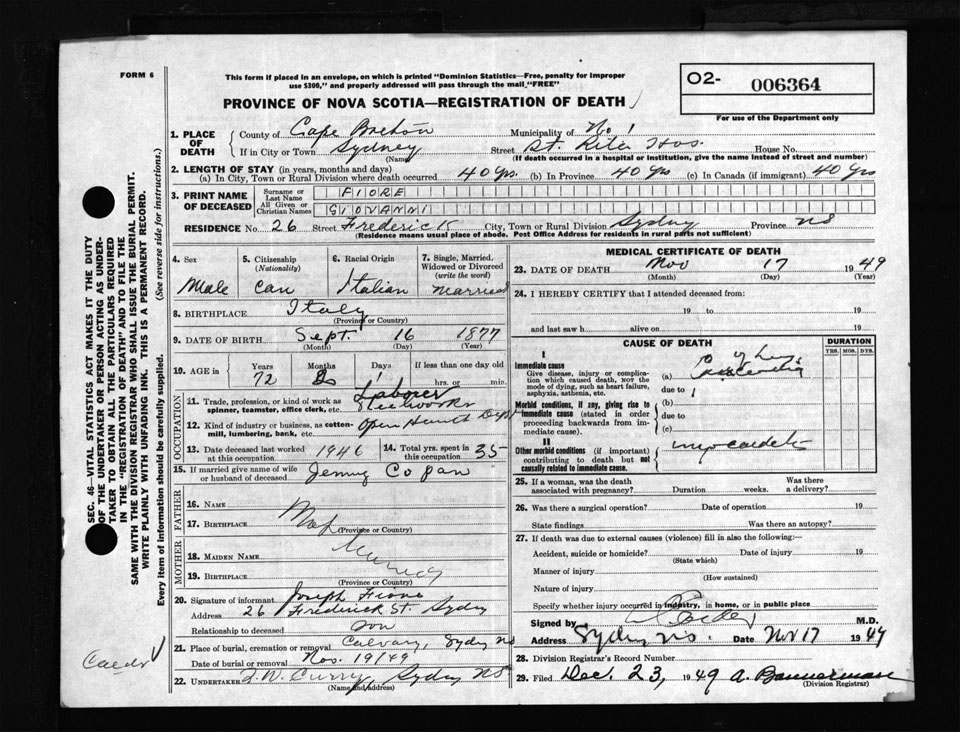 FORM 6
This form if placed in an envelope, on which is printed "Dominion Statistics—Free, penalty for improper
use $300," and properly addressed will pass through the mail "FREE"
O2- 006364
For use of the Department only
PROVINCE OF NOVA SCOTIA—REGISTRATION OF DEATH
1. PLACE OF DEATH County of Cape Breton Municipality of No 1
If in City or Town Sydney (Name) Street St. Rita Hos. House No.
(If death occurred in a hospital or institution, give the name instead of street and number)
2. LENGTH OF STAY (in years, months and days)
(a) In City, Town or Rural Division where death occurred 40 yrs. (b) In Province 40 yrs (c) In Canada (if immigrant) 40 yrs
3. PRINT NAME OF DECEASED Surname or Last Name FIORE
All Given or Christian Names GIOVANNI
RESIDENCE No. 26 Street Frederick City, Town or Rural Division Sydney Province NS
(Residence means usual place of abode. Post Office Address for residents in rural parts not sufficient)
4. Sex 5. Citizenship (Nationality) 6. Racial Origin 7. Single, Married, Widowed or Divorced (write the word)
Male Can Italian Married
8. BIRTHPLACE Italy
(Province or Country)
9. DATE OF BIRTH Sept. 16 1877
(Month) (Day) (Year)
10. AGE in Years Months Days If less than one day old
72 2 1 hrs. or min.
OCCUPATION
11. Trade, profession, or kind of work as spinner, teamster, office clerk, etc. Laborer Steelworks
12. Kind of industry or business, as cotton-mill, lumbering, bank, etc. Open Hearth Dept
13. Date deceased last worked at this occupation 1946 14. Total yrs. spent in this occupation 35
15. If married give name of wife or husband of deceased Jenny Copan
FATHER
16. Name
17. Birthplace
(Province or Country)
MOTHER
18. Maiden Name
19. Birthplace
(Province or Country)
20. Signature of informant Joseph Fiore
Address 26 Frederick St. Sydney
Relationship to deceased Son
21. Place of burial, cremation or removal Calvary, Sydney NS
Date of burial or removal Nov. 19/49
22. UNDERTAKER F. W. Curry, Sydney NS
(Name and address)
MEDICAL CERTIFICATE OF DEATH
23. DATE OF DEATH Nov 17 1949
(Month) (Day) (Year)
24. I HEREBY CERTIFY that I attended deceased from:
19 to 19
and last saw h alive on 19
CAUSE OF DEATH DURATION
YRS. MOS. DYS.
I
Immediate cause
Give disease, injury or complication which caused death, NOT the mode of dying, such as heart failure, asphyxia, asthenia, etc.
(a)
due to
Morbid conditions, if any, giving rise to immediate cause (stated in order proceeding backwards from immediate cause).
(b)
due to
(c)
II
Other morbid conditions (if important) contributing to death but not causally related to immediate cause.
25. If a woman, was the death associated with pregnancy? Duration weeks. Was there a delivery?
26. Was there a surgical operation? Date of operation 19
State findings Was there an autopsy?
27. If death was due to external causes (violence) fill in also the following:—
Accident, suicide or homicide? (State which) Date of injury 19
Manner of injury
(How sustained)
Nature of injury
Specify whether injury occurred in industry, in home, or in public place
Signed by M.D.
Address Sydney N.S. Date Nov 17 1949
28. Division Registrar's Record Number
29. Filed Dec. 23, 1949 A. Bannerman
(Division Registrar)
SEC. 46—VITAL STATISTICS ACT MAKES IT THE DUTY
OF THE UNDERTAKER OR PERSON ACTING AS UNDER-
TAKER TO OBTAIN ALL THE PARTICULARS REQUIRED
IN THE "REGISTRATION OF DEATH" AND TO FILE THE
SAME WITH THE DIVISION REGISTRAR WHO SHALL ISSUE THE BURIAL PERMIT.
WRITE PLAINLY WITH UNFADING INK. THIS IS A PERMANENT RECORD.
Every item of information should be carefully supplied. (See reverse side for instructions.)